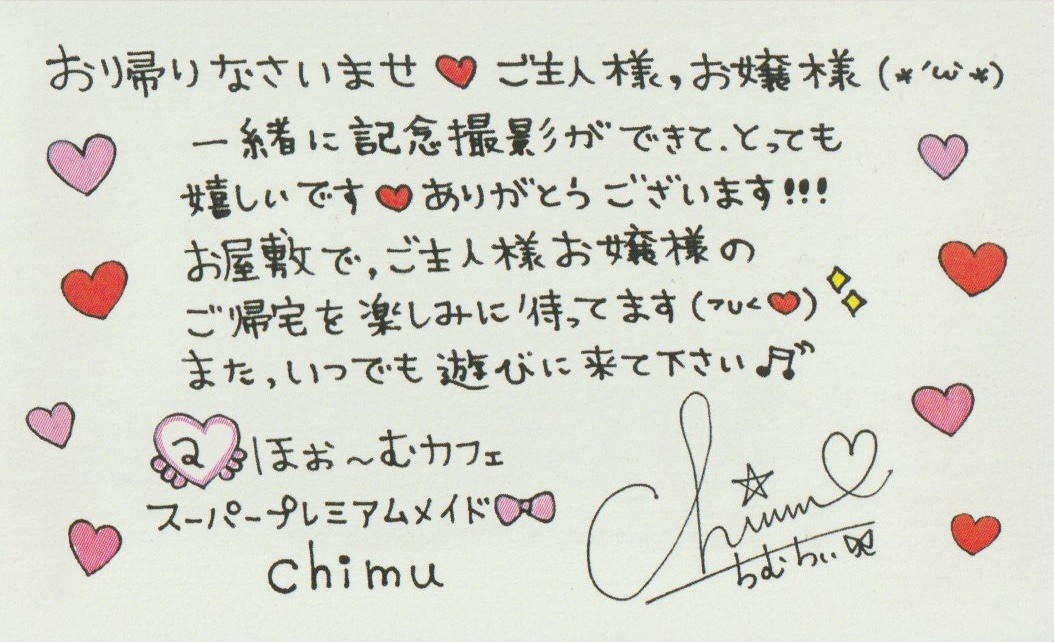 おり帰りなさいませ♥ご主人様,お嬢様(*´ω`*)
一緒に記念撮影ができて、とっても
嬉しいです♥ありがとうございます!!!
お屋敷で,ご主人様お嬢様の
ご帰宅を楽しみに待ってます(っ∪<♥)
また,いつでも遊びに来て下さい♫
@ほぉ～むカフェ
スーパープレミアムメイド
chimu
Chimu
ちむちぃ